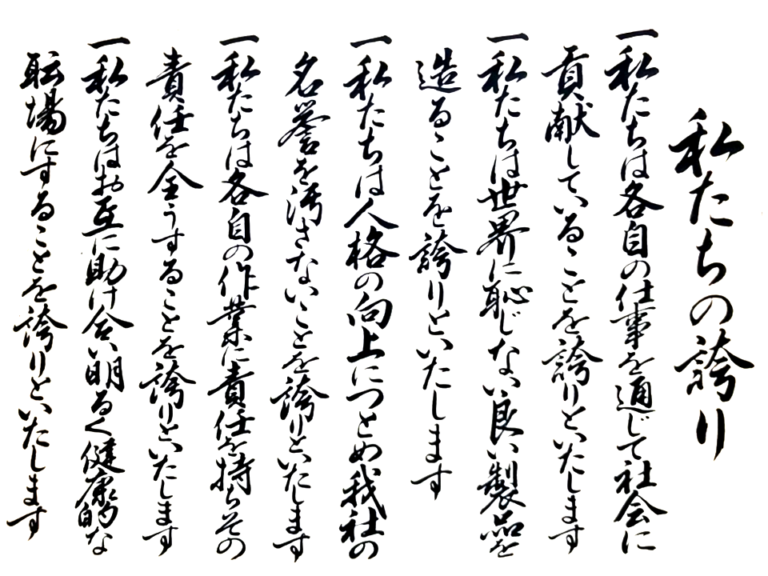 私たちの誇り
一私たちは各自の仕事を通じて社会に
貢献していることを誇りといたします
一私たちは世界に恥じない良い製品を
造ることを誇りといたします
一私たちは人格の向上につとめ我社の
名誉を汚さないことを誇りといたします
一私たちは各自の作業に責任を持ちその
責任を全うすることを誇りといたします
一私たちはお互に助け合い明るく健康的な
転場にすることを誇りといたします